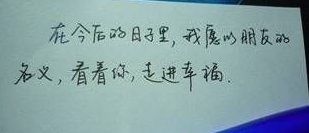 在今后的日子里，我愿以朋友的
名义，看着你，走进幸福.